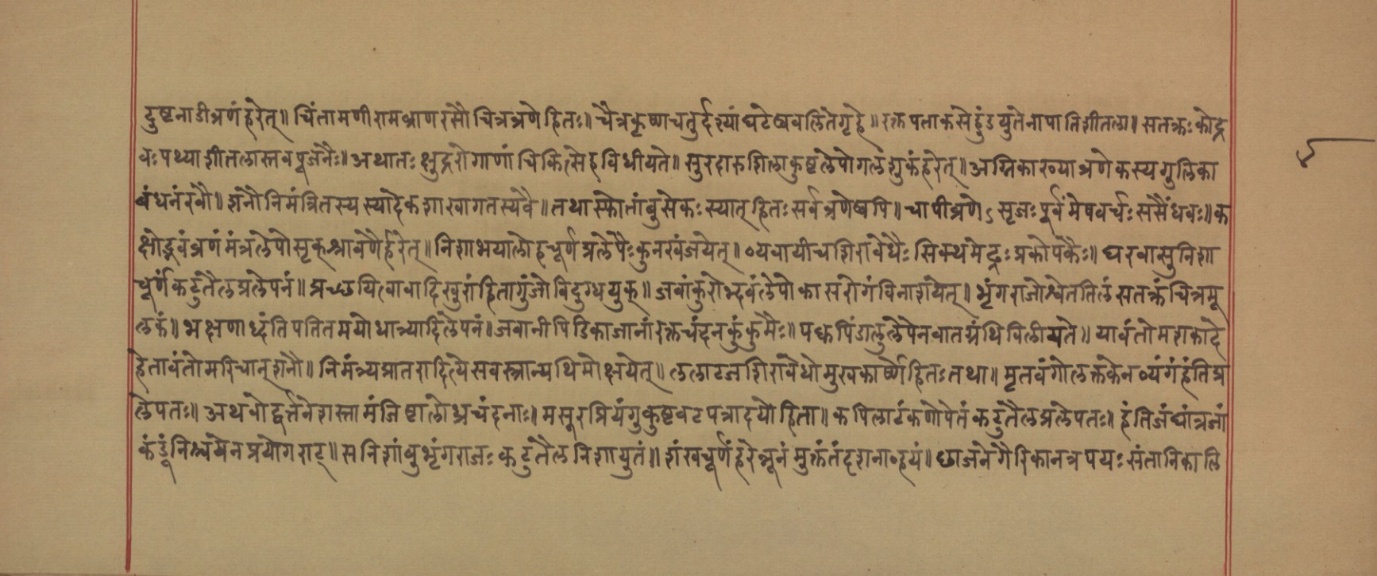 दुष्टनाडीव्रणं हरेत्॥ चिंतामणीरामबाणरसौ चित्रव्रणे हितः॥ चैत्रकृष्णचतुर्दश्यां घटेष्वबलितेगृहे॥ रक्तपताकसेहुंडयुतेनापातिशीतला॥ सतक्रःकोद्र
वः पथ्याशीतलास्तवपूजनैः॥ अथातः क्षुद्ररोगाणां चिकित्सेह विधीयते॥ सुरदारुशिलाकुष्टलेपोगलंशुकंहरेत्॥ अग्निकारख्याव्रणे कस्य गुलिका
बंधनंरवौ॥ शनौनिमंत्रितस्य स्यादेकशाखागतस्यवै॥ तथास्फोतांबुसेकः स्यात् हितः सर्वव्रणेष्वपि॥ चापीव्रणेऽसृजः पूर्वं मेषवर्चः ससैंधवः॥ क
क्षोद्भवंव्रणं मंत्रलेपोसृक्श्रावणैर्हरेत्॥ निशाभयालोहचूर्णप्रलेपैः कुनखंजयेत्॥ व्यवायीचशिरावेधैः सिक्थमेढ्रः प्रकोपकैः॥ घरवासुविशा
चूर्णकटुतैलप्रलेपनं॥ प्रच्छयित्वावादिखुरांहितागुंजोविदुग्धयुक्॥ जवांकुरोभ्दवंलेपोकासरोगंविनाशयेत्॥ भृंगराजोश्वेततिलंसतक्रं चित्रमू
लकं॥ भक्षणाध्धंतिपतितमयोधात्र्यादिलेपनं॥ जवानीपिडिकाजानांरक्तचंदनकुंकुमैः॥ पक्वपिंडालुलेपेनवातग्रंथिविलीयते॥ यावंतोमशकादे
हेतावंतोमरिचान्शनौ॥ निमंत्र्यप्रातरादित्येसवस्त्रान्पथिमोक्षयेत्॥ ललाटजशिरावेधोमुखकार्ष्णेहितःतथा॥ मृतवंगोलक्तकेनव्यंगंहंतिप्र
लेपतः॥ अथवोद्वर्त्तनेशस्तामंजिष्टालोध्रचंदनाः॥ मसूरप्रियंगुकुष्टवटपत्रादयोहिता॥ कपिलाटंकणोपेतं कटुतैलप्रलेपतः॥ हंतिजंघांत्रजां
कंडूंनिश्चयेनप्रयोगराट्॥ सनिशांबुभृंगराजः कटुतैलनिशायुतं॥ शंखचूर्णंहरेन्नूनं मुक्तंतंदृशनाव्हयं॥ छाजनेगैरिकानत्रपयः संतानिकालि